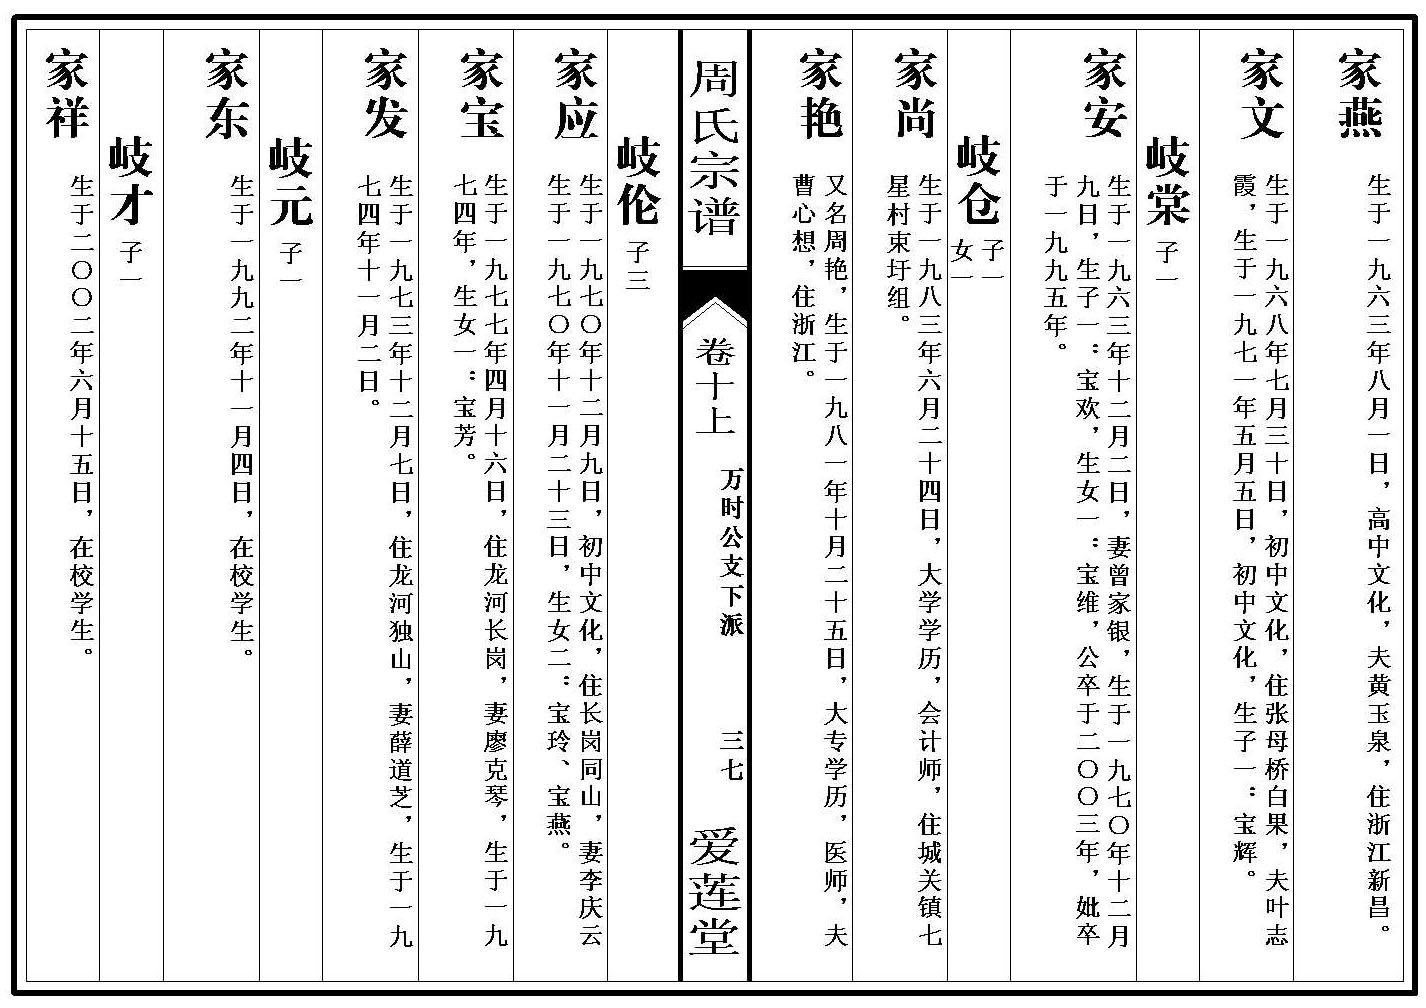 家燕
生于一九六三年八月一日，高中文化，夫黄玉泉，住浙江新昌。
家文
生于一九六八年七月三十日，初中文化，住张母桥白果，夫叶志
霞，生于一九七一年五月五日，初中文化，生子一：宝辉。
岐棠 子一
家安
生于一九六三年十二月二日，妻曾家银，生于一九七〇年十二月
九日，生子一：宝欢，生女一：宝维，公卒于二〇〇三年，妣卒
于一九九五年。
岐仓 子一
女一
家尚
生于一九八三年六月二十四日，大学学历，会计师，住城关镇七
星村束圩组。
家艳
又名周艳，生于一九八一年十月二十五日，大专学历，医师，夫
曹心想，住浙江。
周氏宗谱
卷十上
万时公支下派
三七
爱莲堂
岐伦 子三
家应
生于一九七〇年十二月九日，初中文化，住长岗同山，妻李庆云
生于一九七〇年十一月二十三日，生女二：宝玲、宝燕。
家宝
生于一九七七年四月十六日，住龙河长岗，妻廖克琴，生于一九
七四年，生女一：宝芳。
家发
生于一九七三年十二月七日，住龙河独山，妻薛道芝，生于一九
七四年十一月二日。
岐元 子一
家东
生于一九九二年十一月四日，在校学生。
岐才 子一
家祥
生于二〇〇二年六月十五日，在校学生。